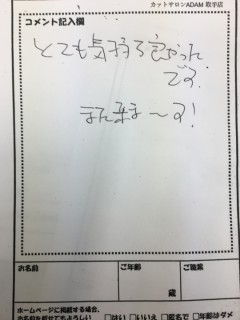 カットサロンADAM 取手店
コメント記入欄
とても気持ち良かった
です。
また来ま〜す!
お名前
ご年齢
ご職業
歳
ホームページに掲載する場合、
お名前を載せてもよろしい
□はい □いいえ □匿名で □年齢はダメ